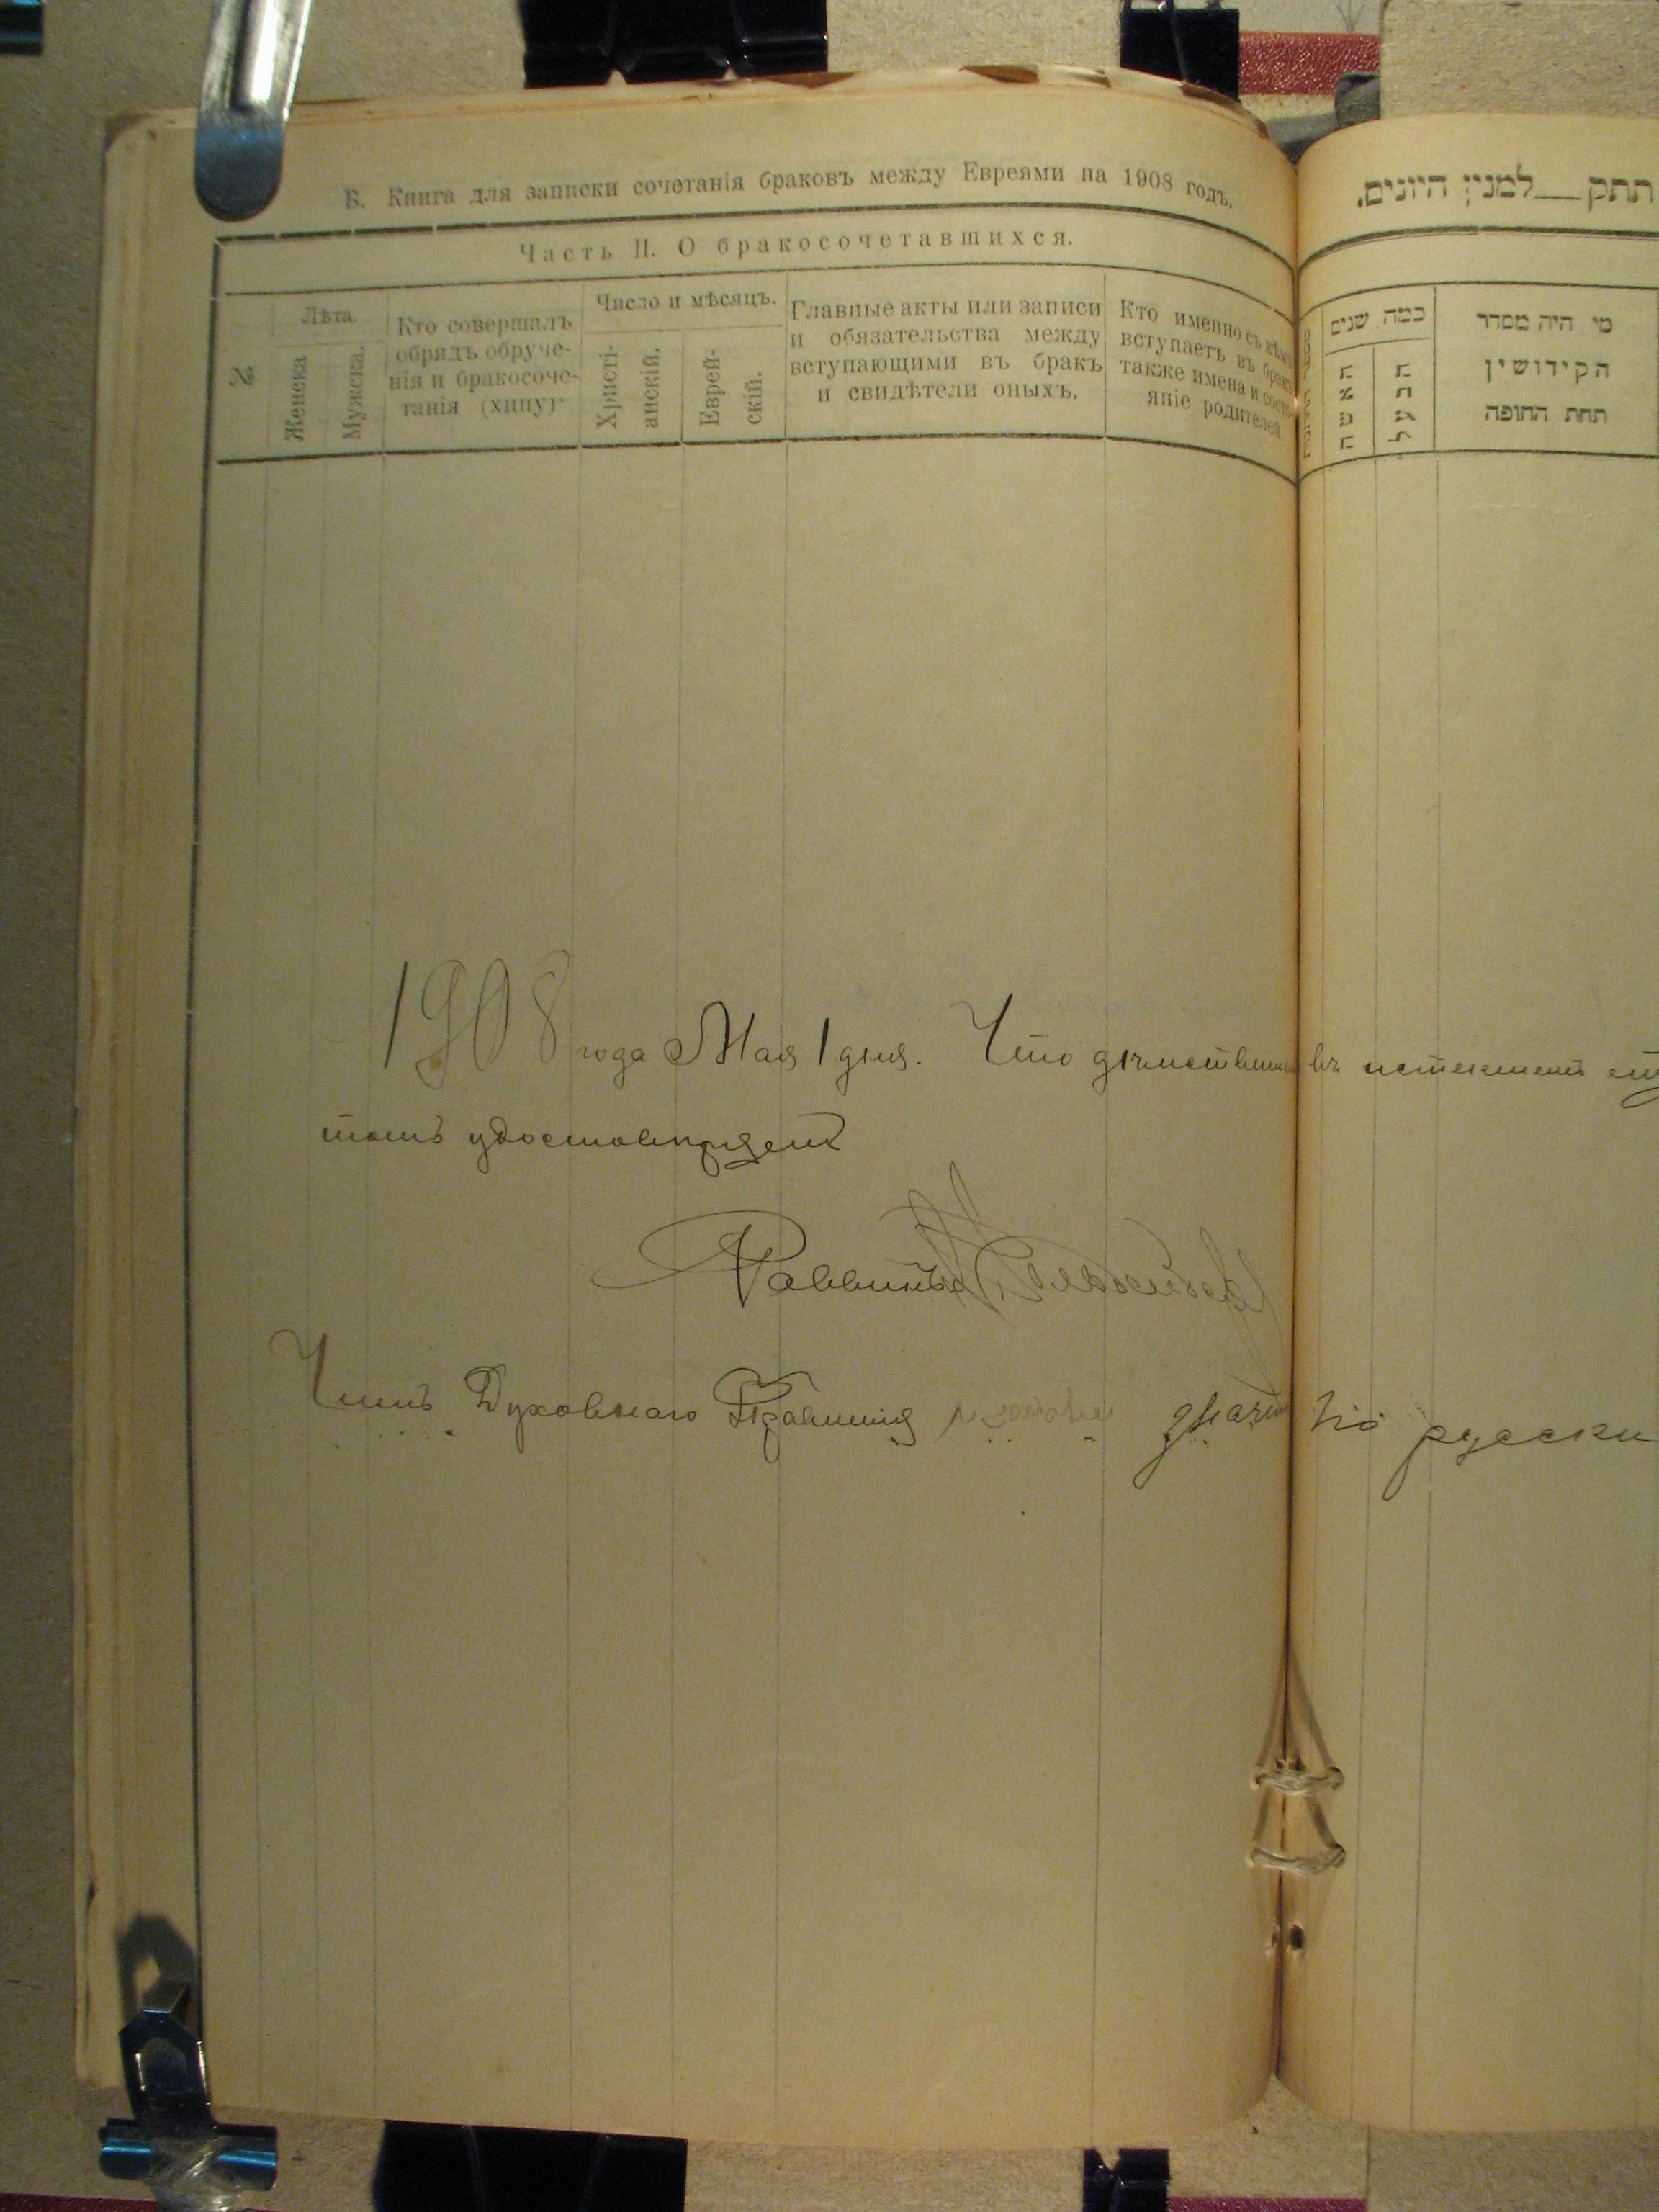 Б. Книга для записки сочетанія браковъ между Евреями на 1908 годъ.
Часть II. О бракосочетавшихся.
№
Лѣта.
Женска
Мужска.
Кто совершалъ
обрядъ обруче-
нія и бракосоче-
танія (хипу)
Число и мѣсяцъ.
Христі-
анскій.
Еврей-
скій.
Главные акты или записи
и обязательства между
вступающими въ бракъ
и свидѣтели оныхъ.
Кто именно съ кѣмъ
вступаетъ въ бракъ
также имена и состо-
яніе родителей.
תתק__למנין היונים.
כמה שנים
האשה
הבעל
מי היה מסדר
הקידושין
תחת החופה
1908 года Мая 1 дня. Что въ истекшемъ
томъ удостовѣряемъ
Раввинъ
Членъ Духовнаго Правленія по русски